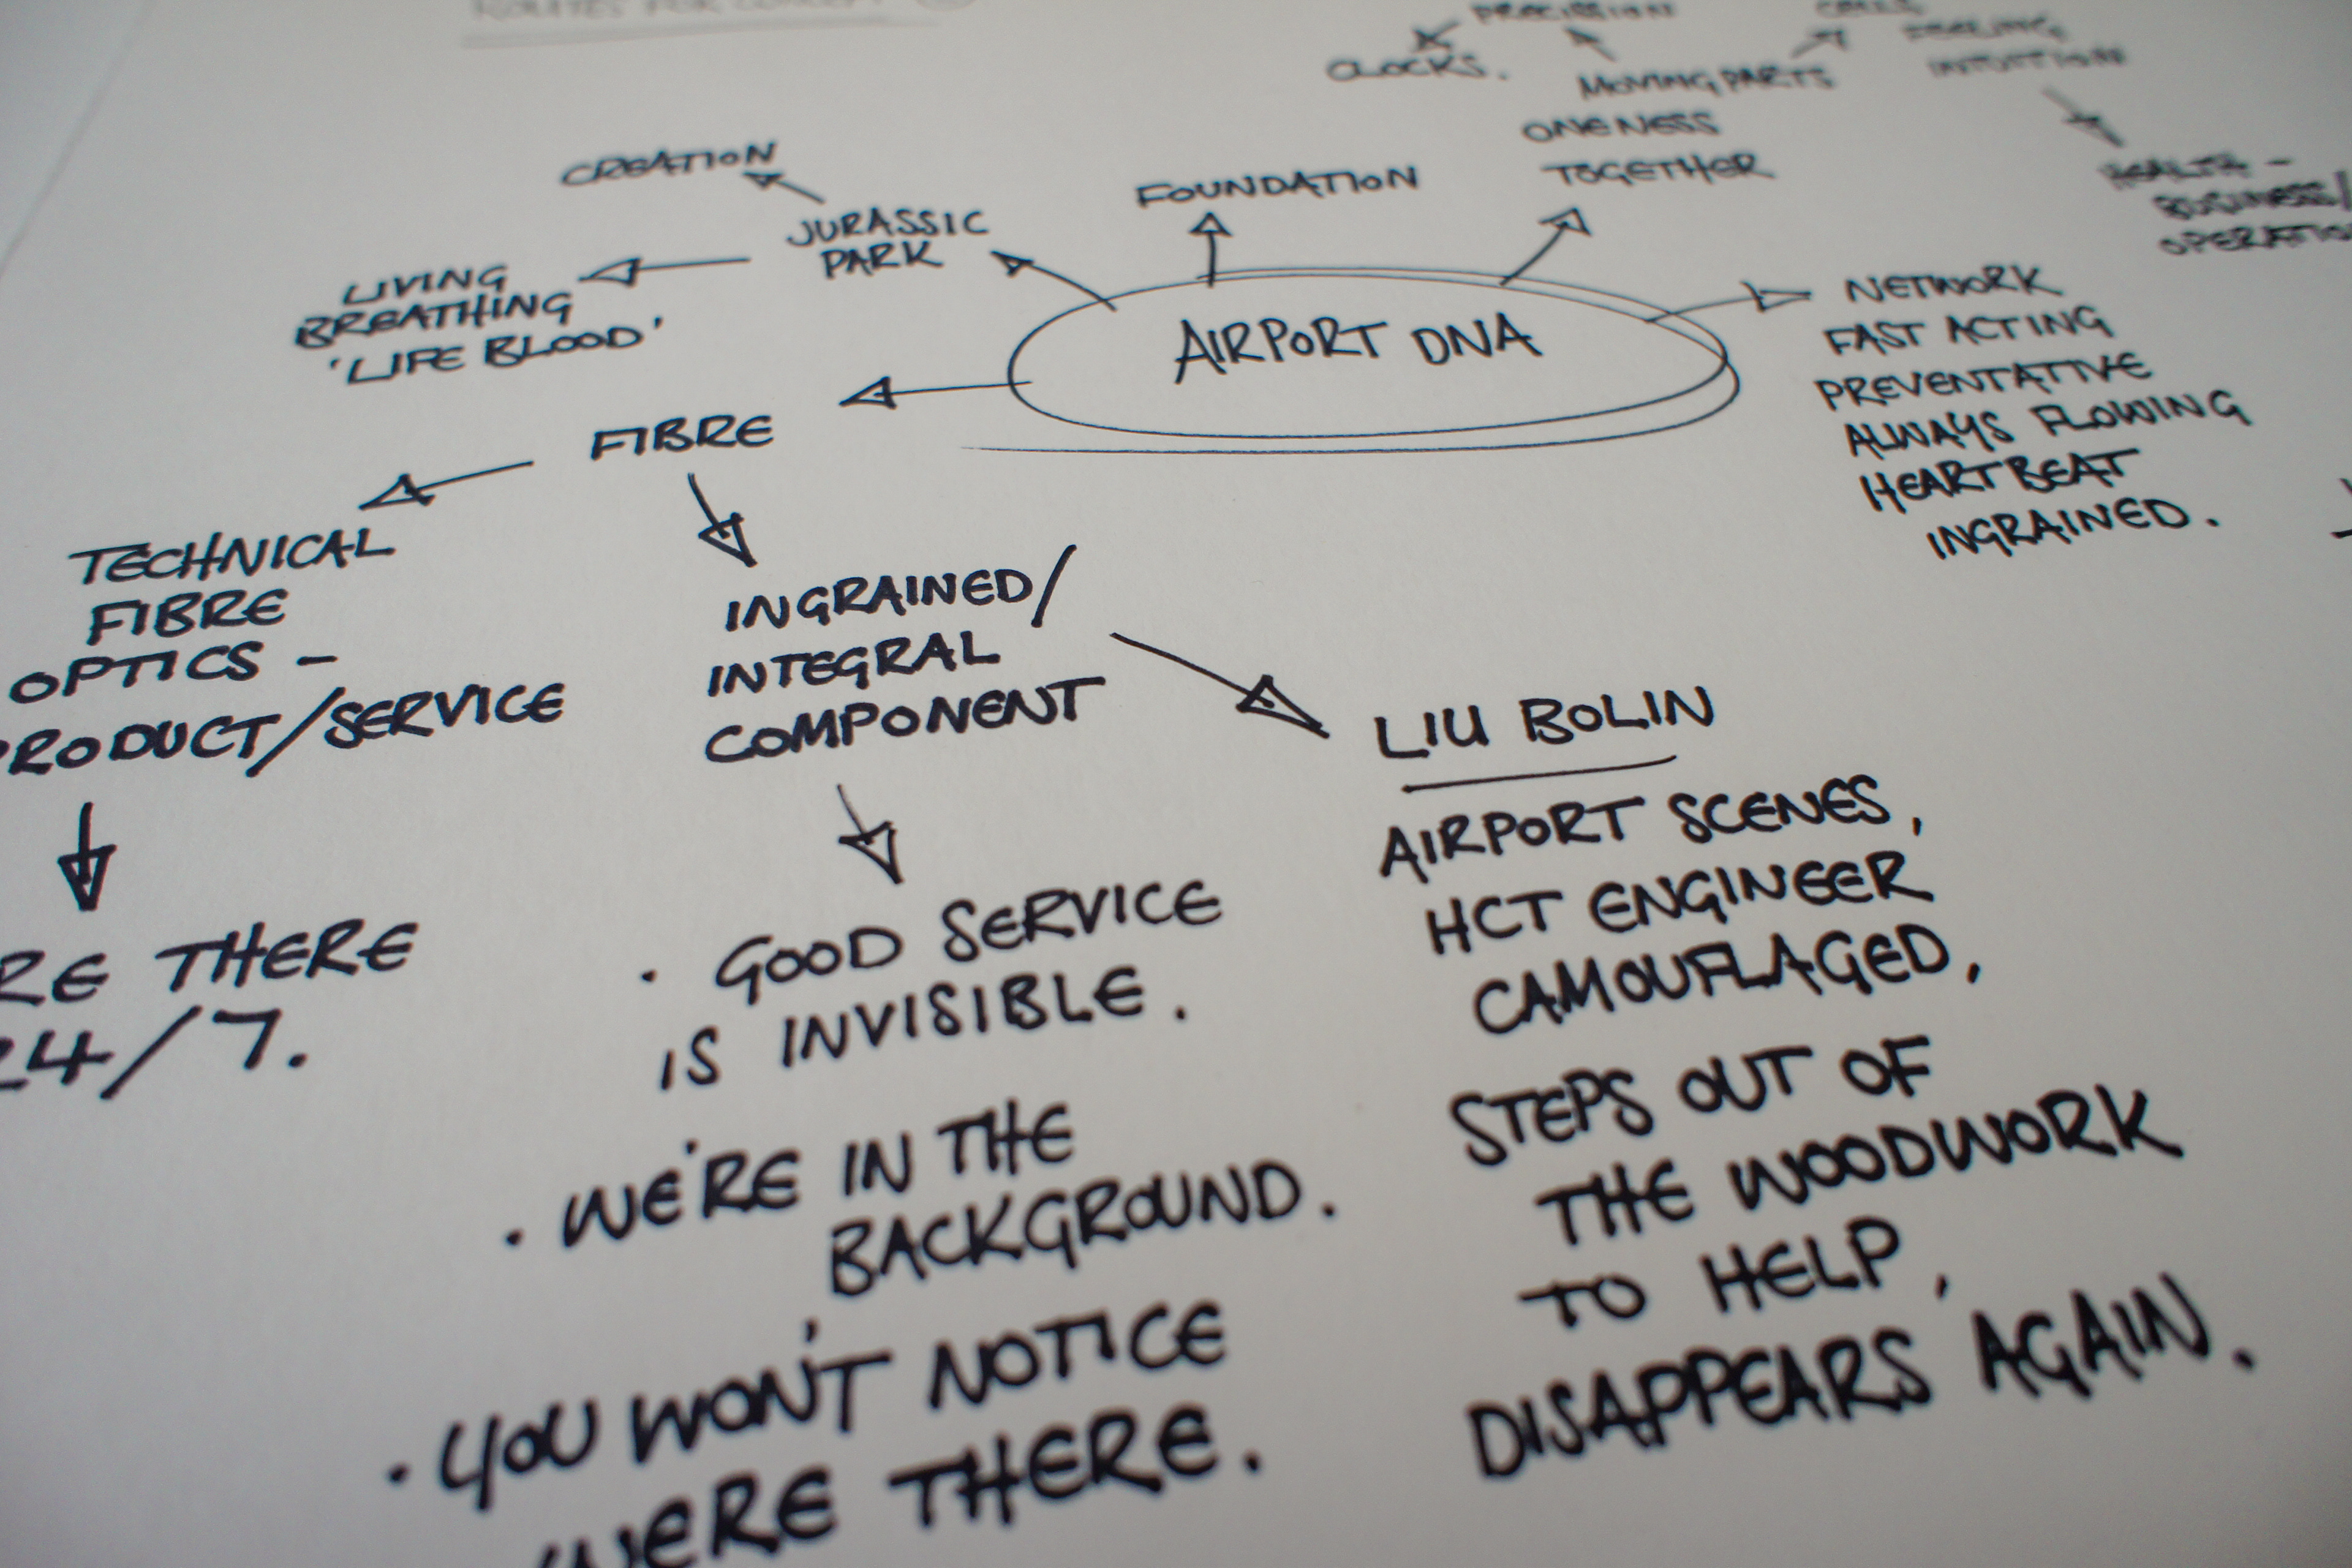 ROUTES FOR
PRECISSION
CLOCKS.
MOVING PARTS
CELLS
FEELING
INTUITION
ONENESS
TOGETHER
HEALTH -
BUSINESS/
CREATION
JURASSIC
PARK
FOUNDATION
LIVING
BREATHING
'LIFE BLOOD'
AIRPORT DNA
NETWORK
FAST ACTING
PREVENTATIVE
ALWAYS FLOWING
HEARTBEAT
INGRAINED.
FIBRE
TECHNICAL
FIBRE
OPTICS -
PRODUCT/SERVICE
THERE
24/7.
INGRAINED/
INTEGRAL
COMPONENT
· GOOD SERVICE
IS INVISIBLE.
· WE'RE IN THE
BACKGROUND.
· YOU WON'T NOTICE
WERE THERE.
LIU BOLIN
AIRPORT SCENES,
HCT ENGINEER
CAMOUFLAGED,
STEPS OUT OF
THE WOODWORK
TO HELP,
DISAPPEARS AGAIN.